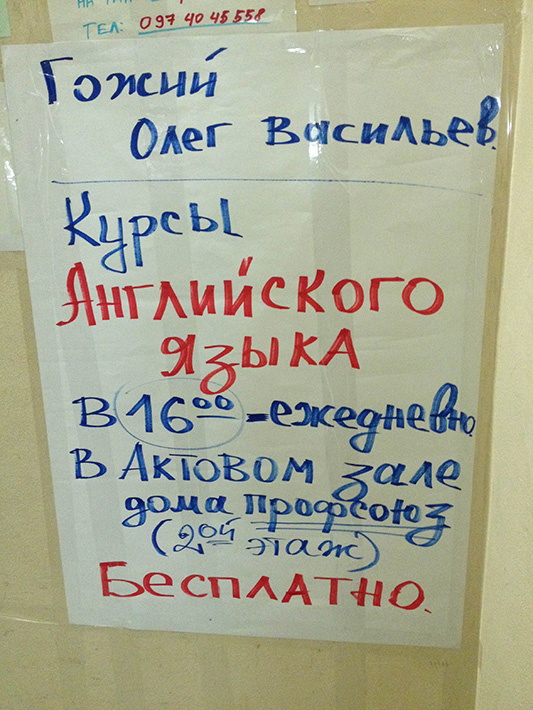 ТЕЛ: 097 40 45 558
Гожий
Олег Васильев.
Курсы
Английского
языка
В 16⁰⁰ - ежедневно.
в Актовом зале
дома профсоюз
(2ой этаж)
Бесплатно.